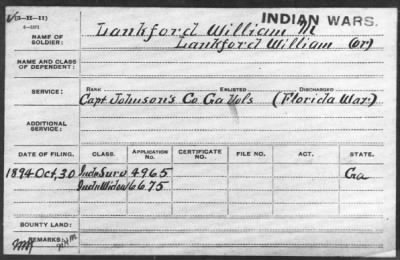 (3-H-11)
INDIAN WARS.
Lankford William M
NAME OF SOLDIER:
Lankford William (or)
NAME AND CLASS OF DEPENDENT:
SERVICE: RANK ENLISTED DISCHARGED
Capt Johnson's Co Ga Vols (Florida War)
ADDITIONAL SERVICE:
DATE OF FILING. CLASS. APPLICATION NO. CERTIFICATE NO. FILE NO. ACT. STATE.
1894 Oct, 30 Indn Surv 4965 Ga
Indn Widow 6675
BOUNTY LAND:
REMARKS: